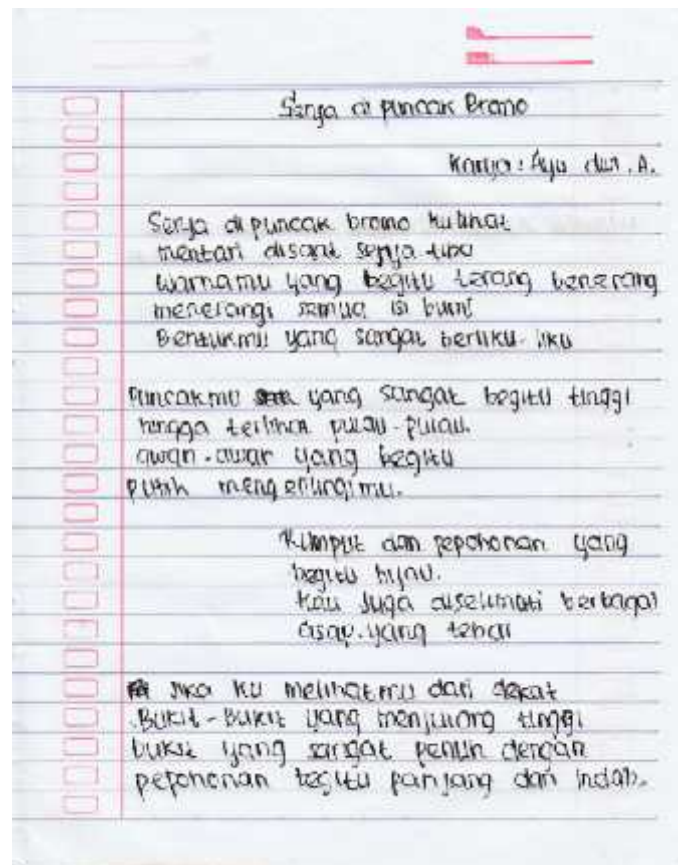 Senja di puncak Bromo
Karya : Ayu dwi . A.
Senja di puncak bromo kulihat
mentari disaat senja tiba
warnamu yang begitu terang benerang
menerangi semua isi bumi
Bentukmu yang sangat berliku-liku
Puncakmu yang sangat begitu tinggi
hingga terlihat pulau-pulau.
awan-awan yang begitu
putih mengelilingimu.
Rumput dan pepohonan yang
begitu hijau.
Kau juga diselimuti berbagai
asap yang tebal
Jika ku melihatmu dari dekat
Bukit-Bukit yang menjulang tinggi
bukit yang sangat penuh dengan
pepohonan begitu panjang dan indah.